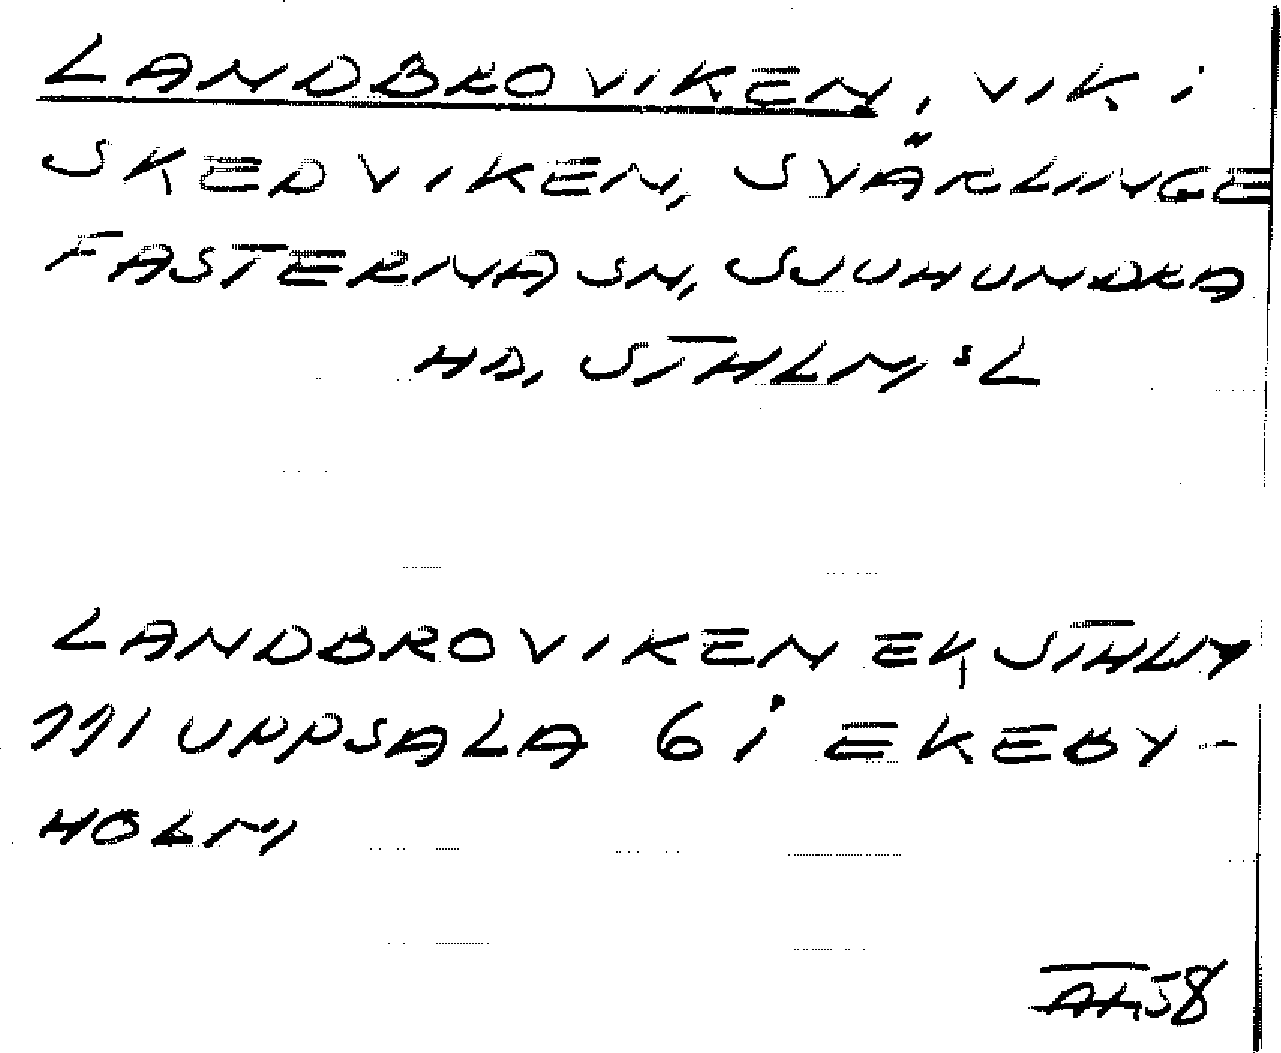 LANDBROVIKEN, VIK I
SKEDVIKEN, SVÄRLINGE
FASTERNA SN, SJUHUNDRA
HD, STHLM:S L
LANDBROVIKEN EK STHLM
111 UPPSALA 6 i EKEBY-
HOLM
58